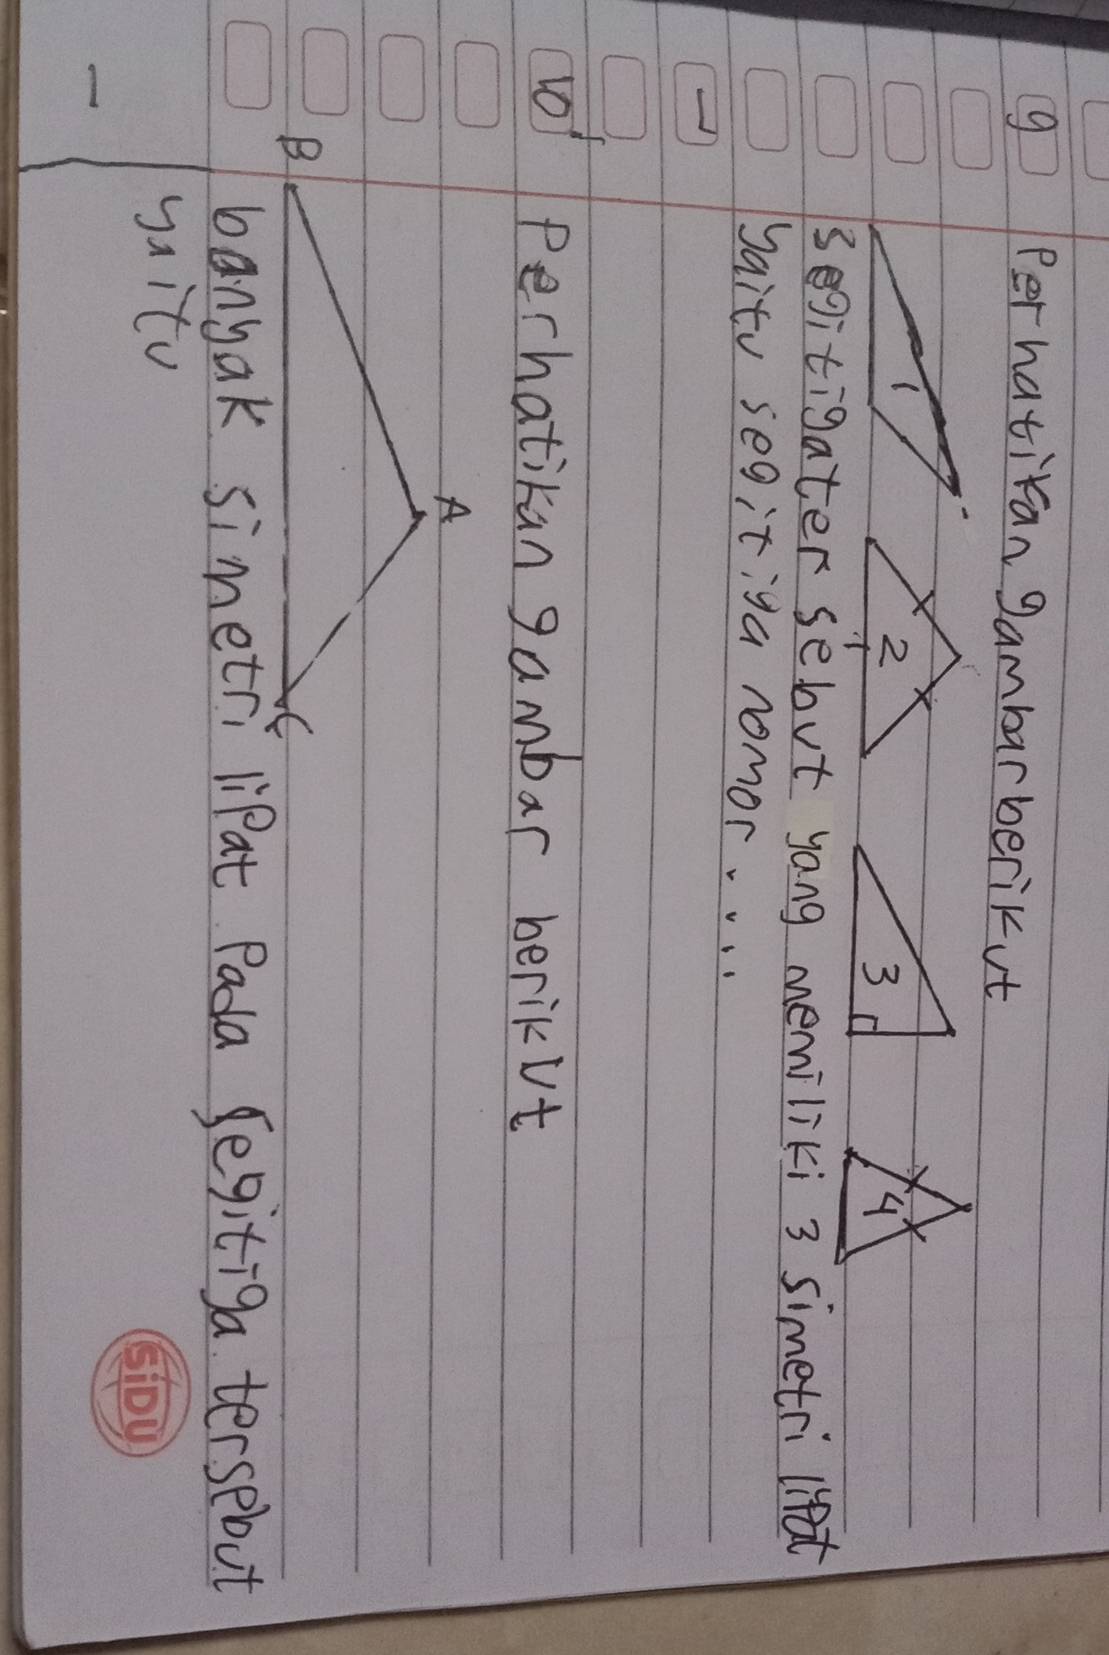 9 Perhatikan gambar berikut
1 2 3 4
segitiga tersebut yang memiliki 3 simetri lipat
yaitu segitiga nomor....
10 Perhatikan gambar berikut
A
B C
banyak simetri lipat pada segitiga tersebut
yaitu
1
SIDU